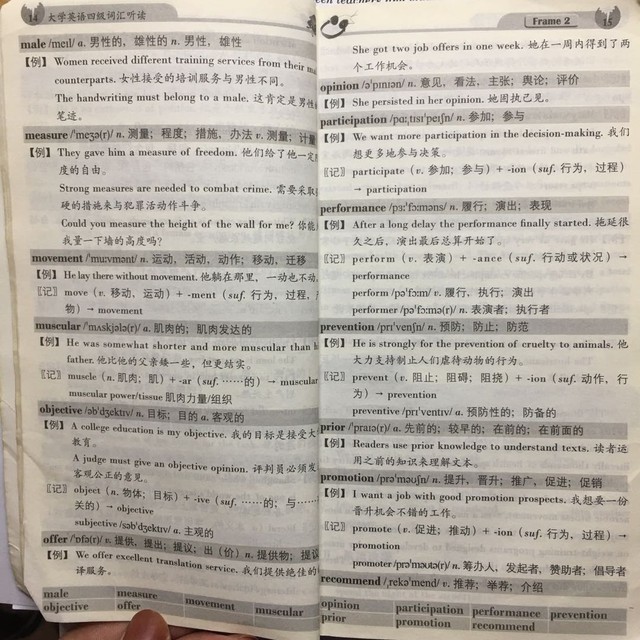 14 大学英语四级词汇听读
male /meɪl/ a. 男性的，雄性的 n. 男性，雄性
【例】 Women received different training services from their
counterparts. 女性接受的培训服务与男性不同。
The handwriting must belong to a male. 这肯定是男性
笔迹。
measure /ˈmeʒə(r)/ n. 测量；程度；措施，办法 v. 测量；计量
【例】 They gave him a measure of freedom. 他们给了他一定
度的自由。
Strong measures are needed to combat crime. 需要采取
硬的措施来与犯罪活动作斗争。
Could you measure the height of the wall for me? 你能
我量一下墙的高度吗？
movement /ˈmuːvmənt/ n. 运动，活动，动作；移动，迁移
【例】 He lay there without movement. 他躺在那里，一动也不动。
〖记〗 move（v. 移动，运动）+ -ment（suf. 行为，过程，
物）→ movement
muscular /ˈmʌskjələ(r)/ a. 肌肉的；肌肉发达的
【例】 He was somewhat shorter and more muscular than
father. 他比他的父亲矮一些，但更结实。
〖记〗 muscle（n. 肌肉；肌）+ -ar（suf. ……的）→ muscular
muscular power/tissue 肌肉力量/组织
objective /əbˈdʒektɪv/ n. 目标；目的 a. 客观的
【例】 A college education is my objective. 我的目标是接受大
教育。
A judge must give an objective opinion. 评判员必须发
客观公正的意见。
〖记〗 object（n. 物体；目标）+ -ive（suf. ……的；与……
关的）→ objective
subjective /səbˈdʒektɪv/ a. 主观的
offer /ˈɒfə(r)/ v. 提供，提出；提议；出（价）n. 提供物；提议
【例】 We offer excellent translation service. 我们提供绝佳的
译服务。
male measure movement muscular
objective offer
Frame 2 15
She got two job offers in one week. 她在一周内得到了两
个工作机会。
opinion /əˈpɪnɪən/ n. 意见，看法，主张；舆论；评价
【例】 She persisted in her opinion. 她固执己见。
participation /pɑːˌtɪsɪˈpeɪʃn/ n. 参加；参与
【例】 We want more participation in the decision-making. 我们
想更多地参与决策。
〖记〗 participate（v. 参加；参与）+ -ion（suf. 行为，过程）
→ participation
performance /pəˈfɔːməns/ n. 履行；演出；表现
【例】 After a long delay the performance finally started. 拖延很
久之后，演出最后总算开始了。
〖记〗 perform（v. 表演）+ -ance（suf. 行动或状况）→
performance
perform /pəˈfɔːm/ v. 履行，执行；演出
performer /pəˈfɔːmə(r)/ n. 表演者；执行者
prevention /prɪˈvenʃn/ n. 预防；防止；防范
【例】 He is strongly for the prevention of cruelty to animals. 他
大力支持制止人们虐待动物的行为。
〖记〗 prevent（v. 阻止；阻碍；阻挠）+ -ion（suf. 动作，行
为）→ prevention
preventive /prɪˈventɪv/ a. 预防性的；防备的
prior /ˈpraɪə(r)/ a. 先前的；较早的；在前的；在前面的
【例】 Readers use prior knowledge to understand texts. 读者运
用之前的知识来理解文本。
promotion /prəˈməʊʃn/ n. 提升，晋升；推广，促进；促销
【例】 I want a job with good promotion prospects. 我想要一份
晋升机会不错的工作。
〖记〗 promote（v. 促进；推动）+ -ion（suf. 行为，过程）→
promotion
promoter /prəˈməʊtə(r)/ n. 筹办人，发起者，赞助者；倡导者
recommend /ˌrekəˈmend/ v. 推荐；举荐；介绍
opinion participation performance prevention
prior promotion recommend